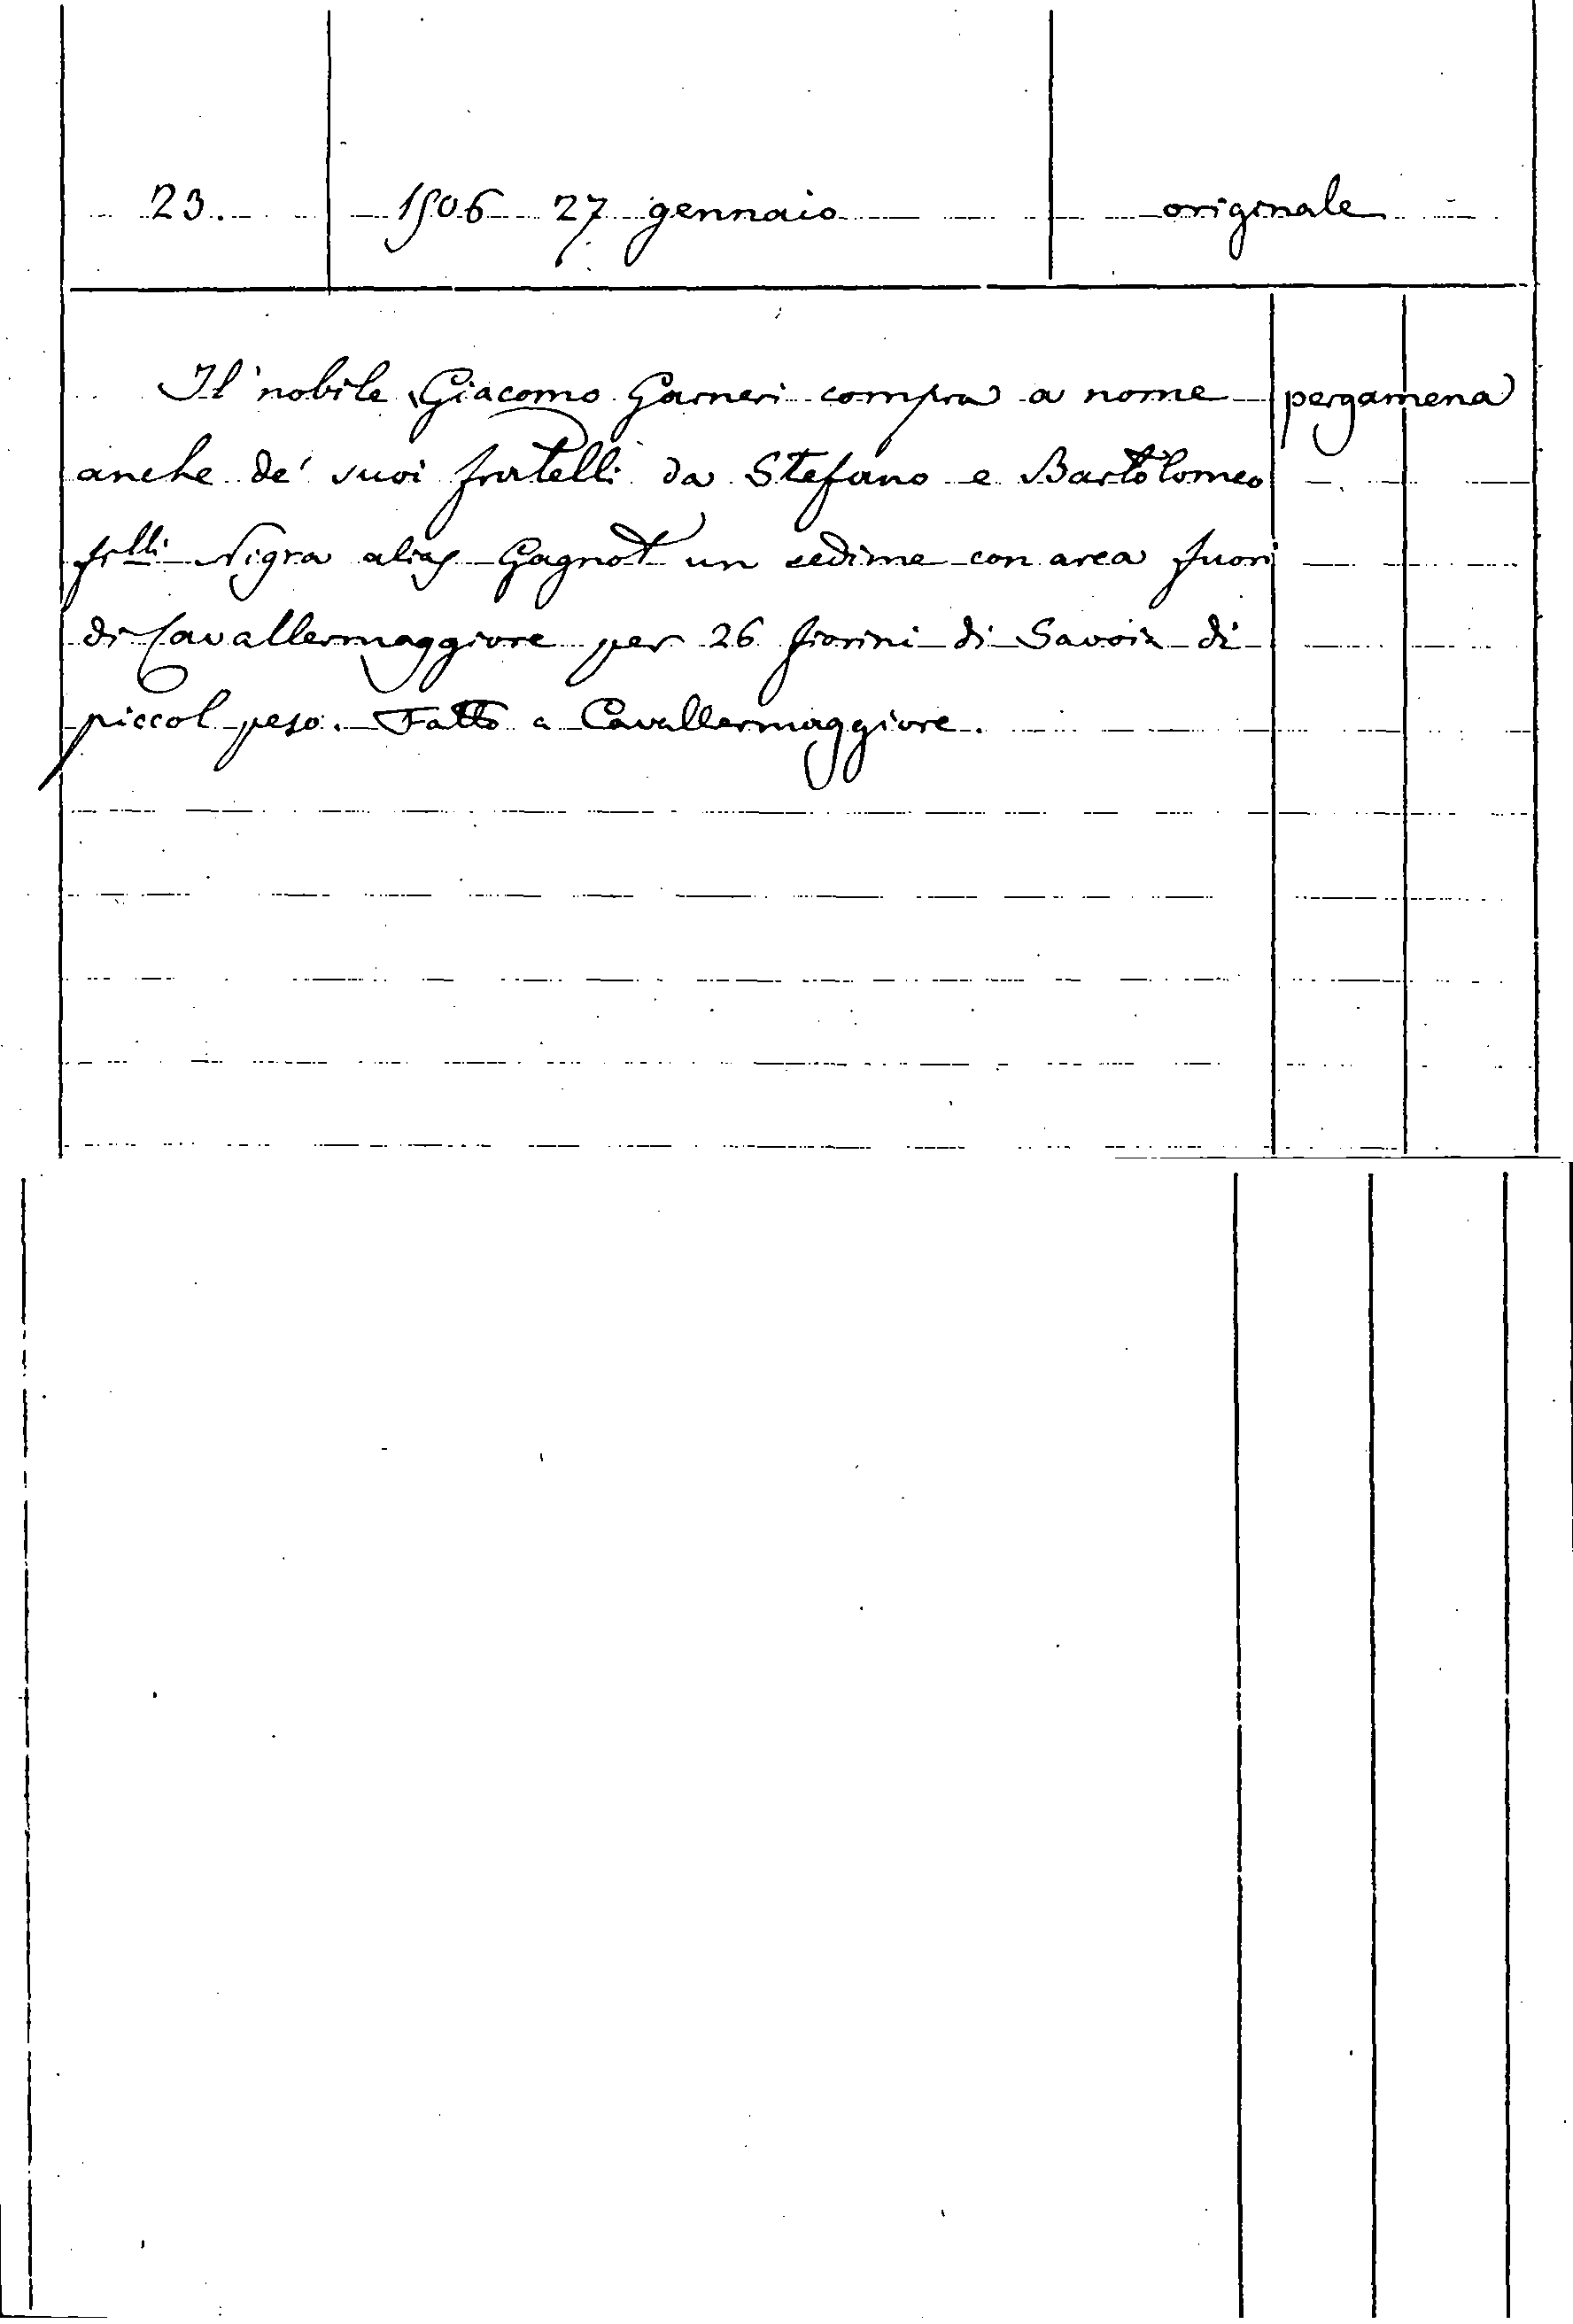 23. 1506 27 gennaio originale
Il nobile Giacomo Garneri compra a nome pergamena
anche de' suoi fratelli da Stefano e Bartolomeo
frlli Nigra alias Gagnot un sedime con area fuori
di Cavallermaggiore per 26 fiorini di Savoia di
piccol peso. Fatto a Cavallermaggiore.